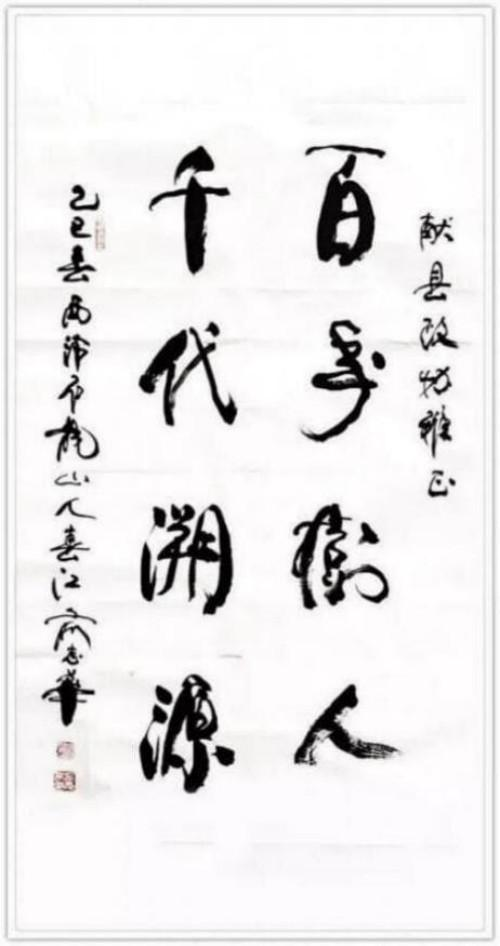 献县政协雅正
百年树人
千代溯源
乙巳春西泠石龙山人春江俞志华